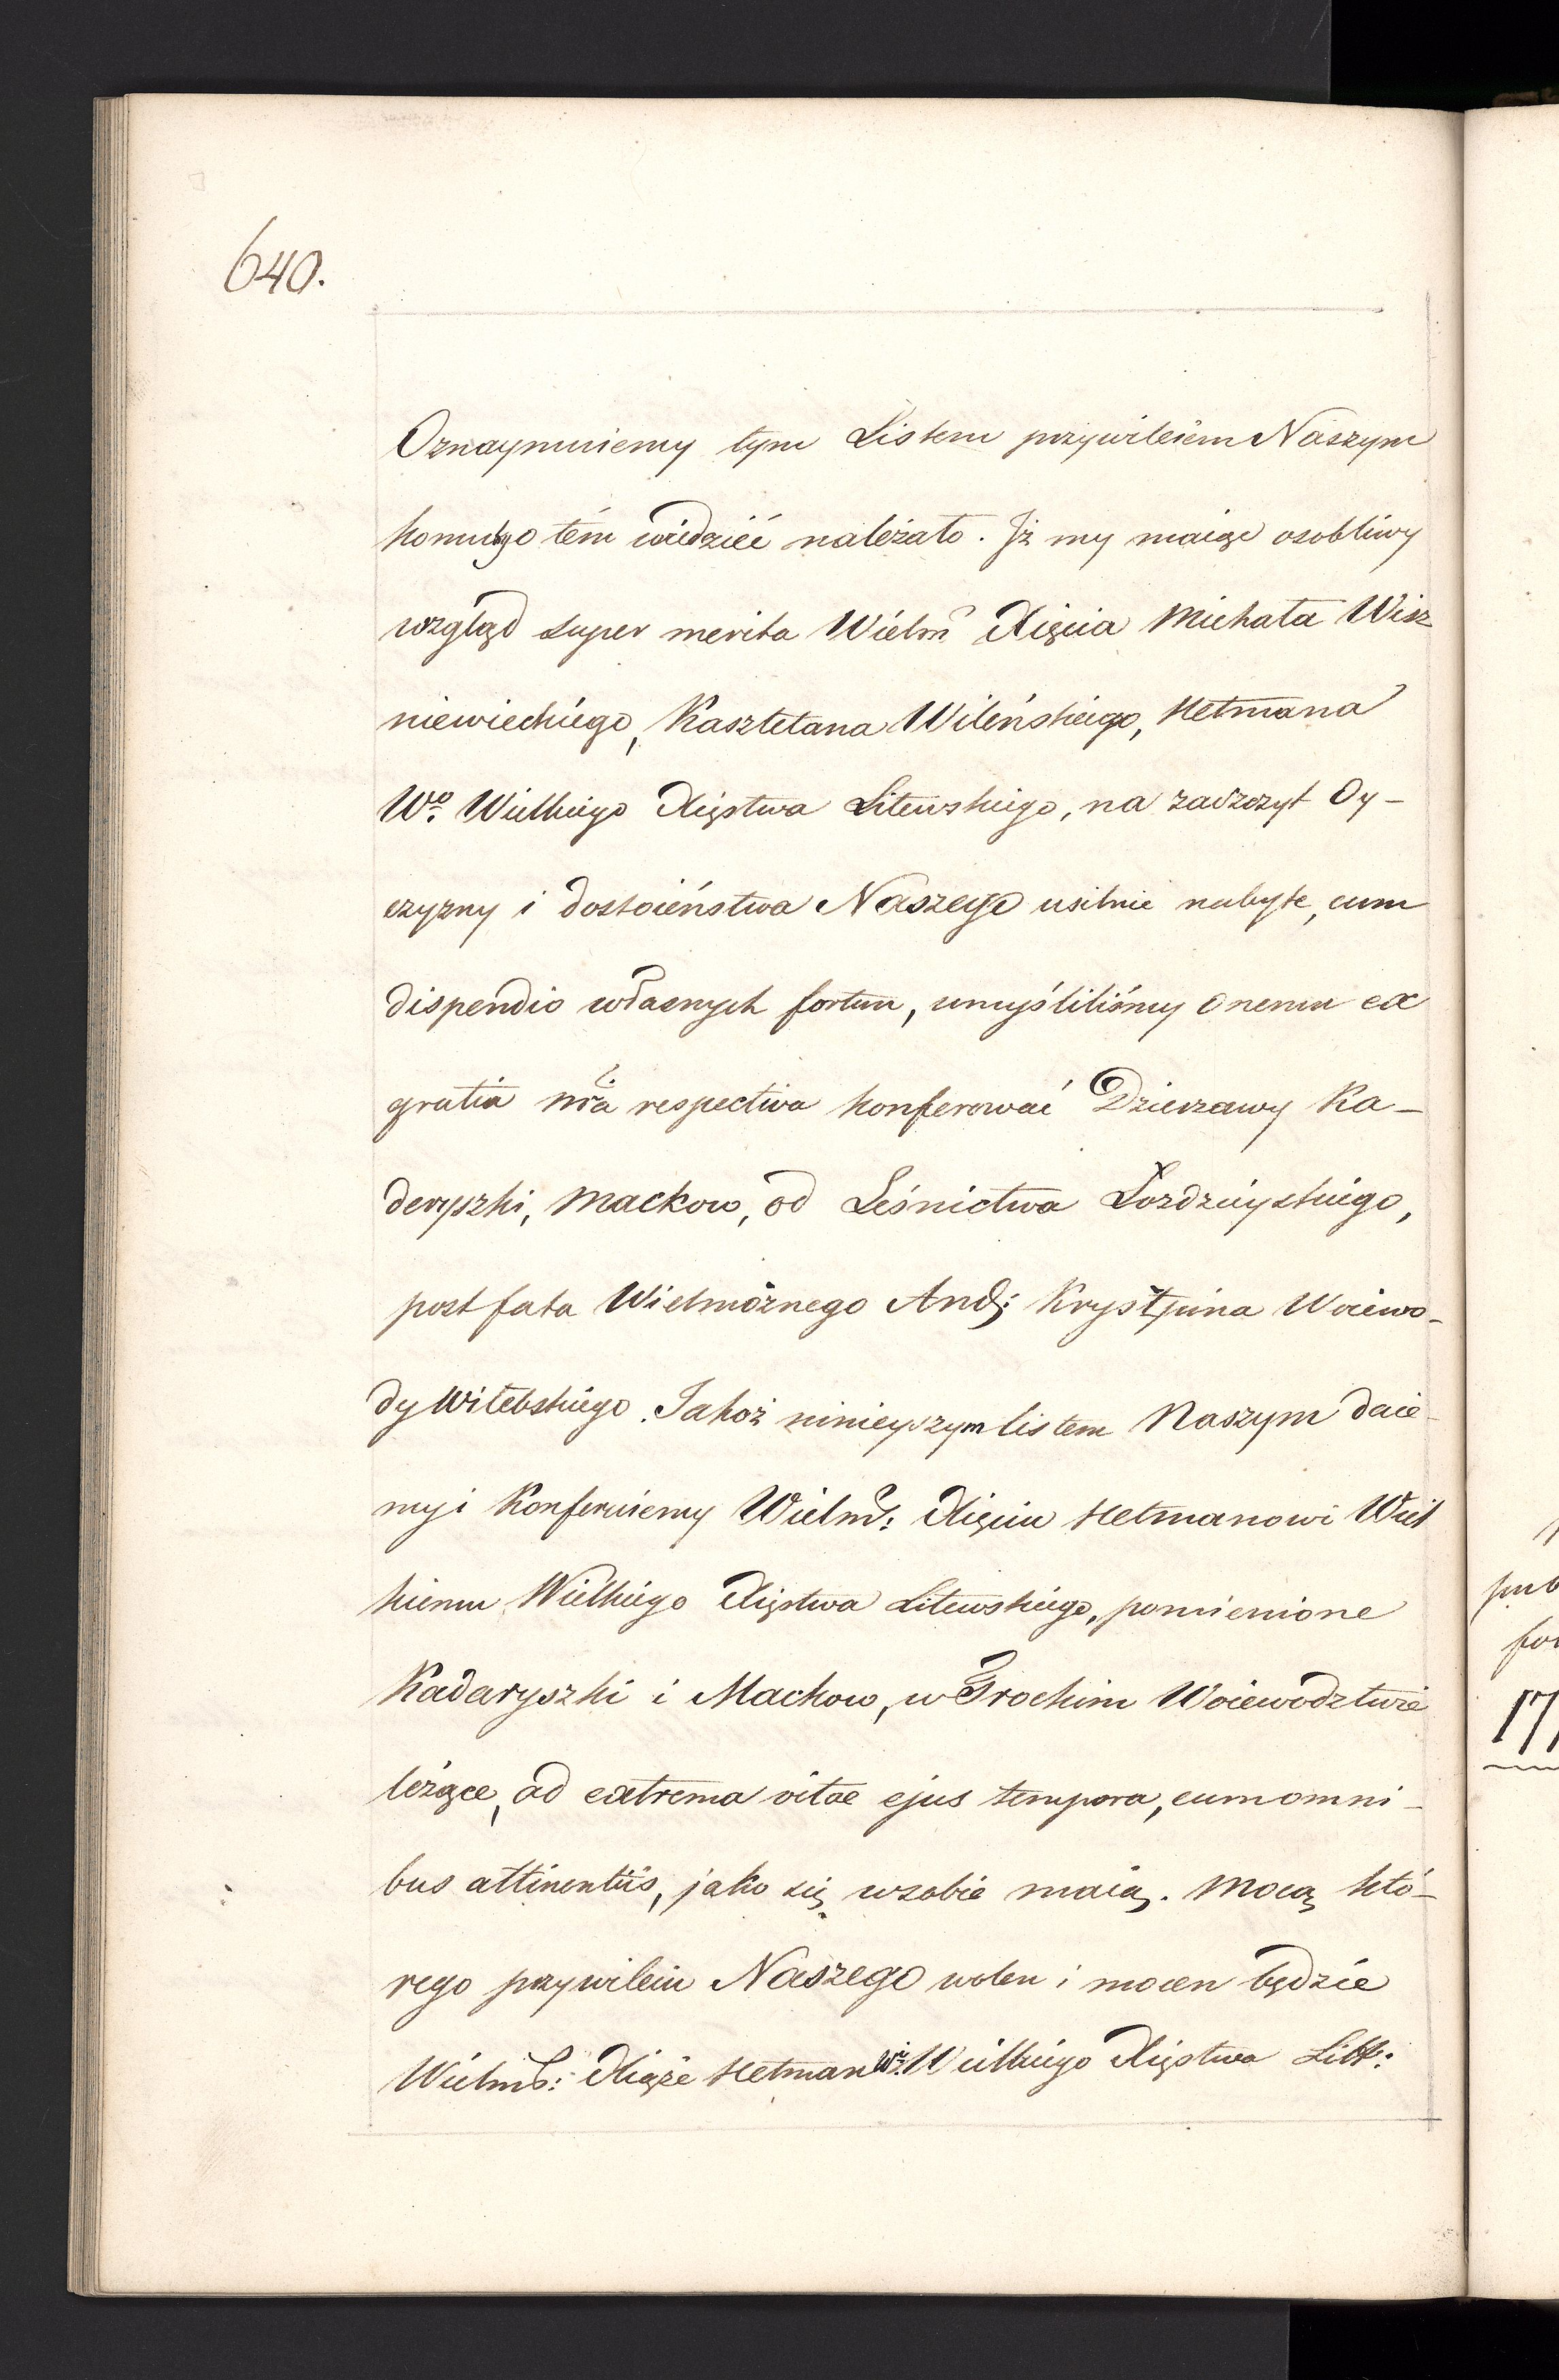 640.
Oznaymuiemy tym Listem przywileiem Naszym
komu by o tém wiedzieć należało. Jż my maiąc osobliwy
wzgląd super merita Wielm<sup>o</sup> Xięcia Michała Wisz
niewieckiego, Kasztelana Wileńskiego, Hetmana
W<sup>o</sup>. Wielkiego Xięstwa Litewskiego, na zaszczyt Oy-
czyzny i dostoieństwa Naszego usilnie nabyte, cum
dispendio własnych fortun, umyśliliśmy onemu ex
gratia nra respectiva konferować Dzierzawy Ka-
deryszki, Mackow, od Leśnictwa Łozdzieyskiego,
post fata Wielmożnego And: Krysztpina Woiewo-
dy Witebskiego. Jakoż ninieyszym listem Naszym daie-
my i Konferuiemy Wielm: Xięciu Hetmanowi Wiel
kiemu Wielkiego Xięstwa Litewskiego, pomienione
Kadaryszki i Mackow, w Trockim Woiewodztwie
leżące, ad extrema vitae ejus tempora, cum omni-
bus attinentiis, jako się w sobie maią. Mocą któ-
rego przywileiu Naszego wolen i mocen będzie
Wielmo: Xiąże Hetman W: Wielkiego Xięstwa Litt:
pub
for
17